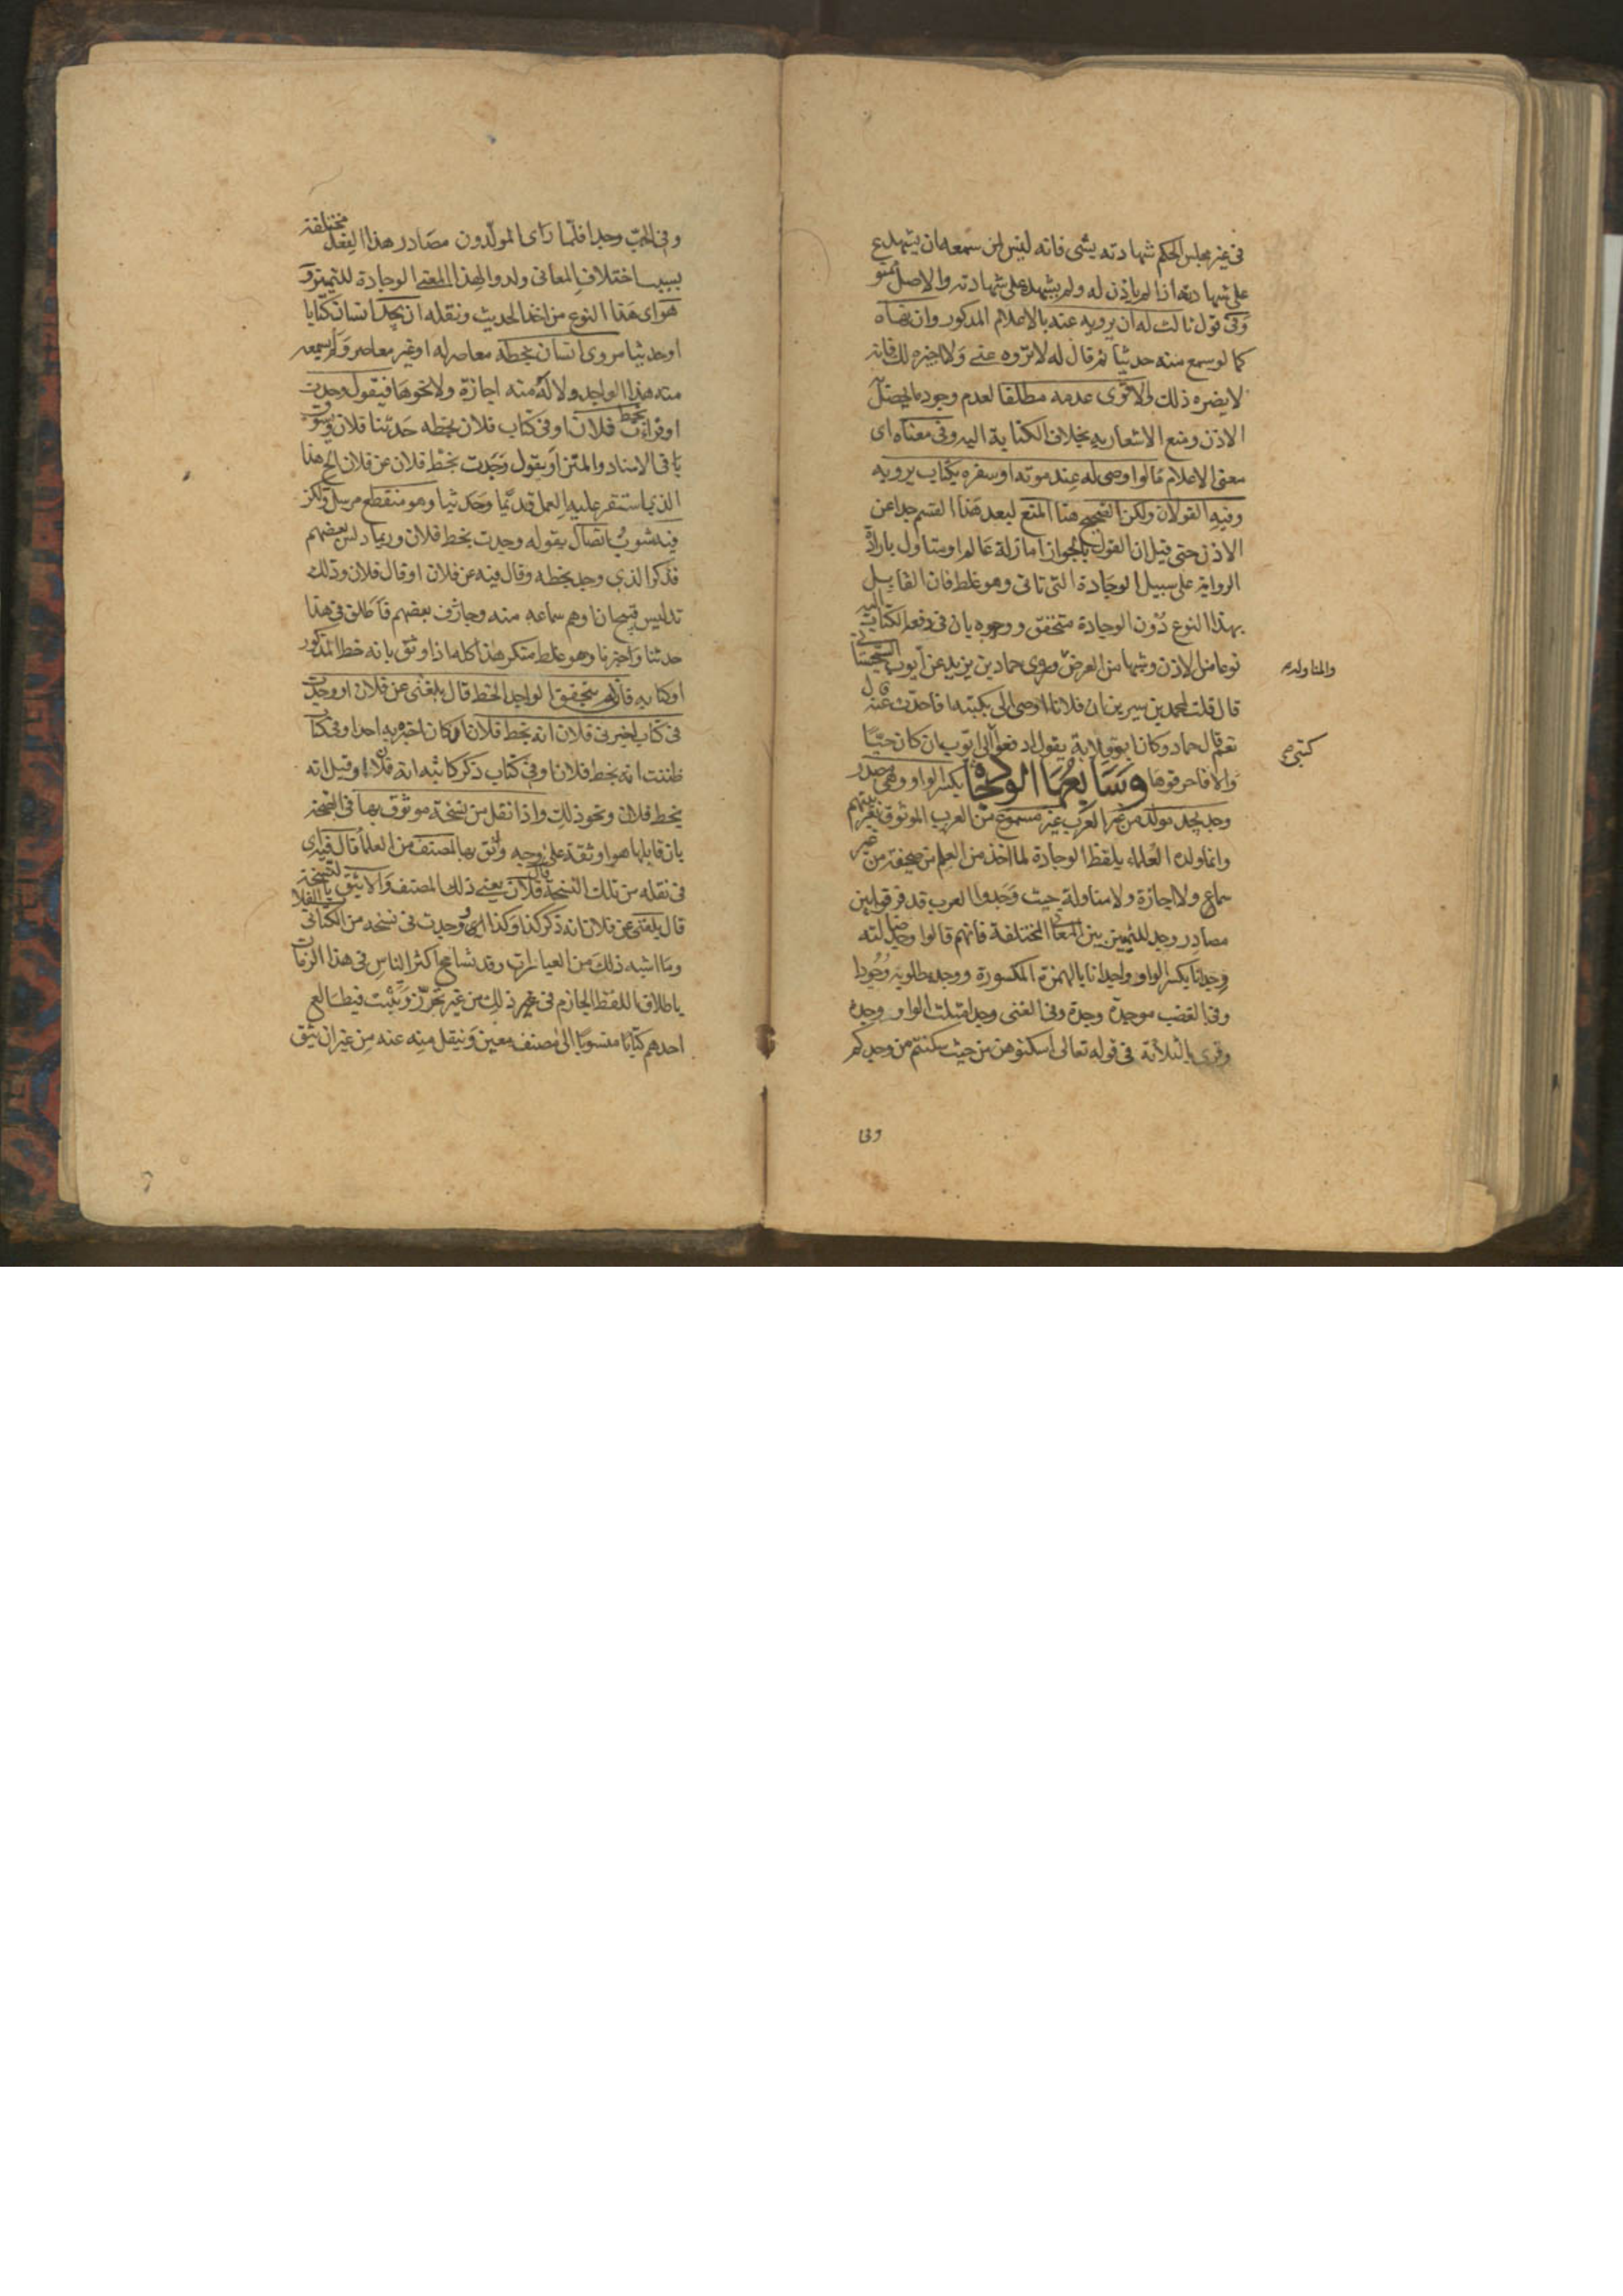 في غير مجلس الحكم شهادته بشئ فانه ليس لمن سمعه ان يشهد
على شهادته اذا لم ياذن له ولم يشهده على شهادته والاصل ممنوع
وفي قول ثالث له ان يرويه عنه بالاعلام المذكور وان نهاه
كما لو سمع منه حديثا ثم قال له لا تروه عني ولا اجيزه لك فانه
لا يضره ذلك والاقوى عدمه مطلقا لعدم وجود ما يحصل
الاذن ومنع الاشعار به بخلاف الكتابة اليه وفي معناه اى
معنى الاعلام ما لو اوصى له عند موته او سفره بكتاب يرويه
وفيه القولان ولكن الصحيح هنا المنع لبعد هذا القسم جدا عن
الاذن حتى قيل ان القول بالجواز اما زلة عالم او متاول بارادة
الرواية على سبيل الوجادة التي تاتي وهو غلط فان القايل
بهذا النوع دون الوجادة متحقق ووجوه بان في دفعها اليه
نوعا من الاذن وشبها من العرض وروى حماد بن يزيد عن ايوب السجستاني
والمناوله
قال قلت لمحمد بن سيرين ان فلانا اوصى الى بكتبه افاحدث عنه قال
نعم قال حماد وكان ابو قلابة يقول ادفعوا الى ايوب ان كان حيّا
كتبي
والا فاحرقوها وسابعها الوجادة بكسر الواو وهى مصدر
وجد يجد مولد من غير العرب غير مسموع من العرب الموثوق بعربيتهم
وانما ولده العلماء بلفظ الوجادة لما اخذ من العلم من صحيفة من غير
سماع ولا اجازة ولا مناولة حيث وجدوا العرب قد فرقوا بين
مصادر وجد للتمييز بين المعاني المختلفة فانهم قالوا وجد ضالته
وجدانا بكسر الواو واجدانا بالهمزة المكسورة ووجد مطلوبه وجودا
وفي الغضب موجدة وجدة وفي الغنى وجدا مثلث الواو وجدة
وقرئ بالثلاثة في قوله تعالى اسكنوهن من حيث سكنتم من وجدكم
وفي
وفي الحب وجدا فلما راى المولدون مصادر هذا الفعل مختلفة
بسبب اختلاف المعاني ولدوا لهذا المعنى الوجادة للتمييز و
هو اى هذا النوع من اخذ الحديث ونقله ان يجد انسان كتابا
او حديثا مروى انسان بخطه معاصر له او غير معاصر ولم يسمعه
منه هذا الواجد ولا له منه اجازة ولا نحوها فيقول وجدت
او قرات بخط فلان او في كتاب فلان بخطه حدثنا فلان ويسوق
باقي الاسناد والمتن او يقول وجدت بخط فلان عن فلان الخ هذا
الذي استقر عليه العمل قديما وحديثا وهو منقطع مرسل ولكن
فيه شوب اتصال بقوله وجدت بخط فلان وربما دلس بعضهم
فذكر الذي وجد بخطه وقال فيه عن فلان او قال فلان وذلك
تدليس قبيح ان اوهم سماعه منه وجازف بعضهم فاطلق في هذا
حدثنا واخبرنا وهو غلط منكر هذا كله اذا وثق بانه خط المذكور
او كتابه فان لم يتحقق الواجد الخط قال بلغني عن فلان او وجدت
في كتاب اخبرني فلان انه بخط فلان ان كان اخبره به احد او في كتاب
ظننت انه بخط فلان او في كتاب ذكر كاتبه انه فلان او قيل انه
بخط فلان ونحو ذلك واذا نقل من نسخة موثوق بها في الصحة
بان قابلها هو او ثقة على وجه وثق بها لمصنف من العلماء قال فيه اى
في نقله من تلك النسخة قال فلان يعني ذلك المصنف والا يثق بالنسخة
قال بلغني عن فلان انه ذكر كذا وكذا او وجدت في نسخة من الكتاب الفلاني
وما اشبه ذلك من العبارات وقد تسامح اكثر الناس في هذا الزمان
باطلاق اللفظ الجازم في غير ذلك من غير تحرز وتثبت فيطالع
احدهم كتابا منسوبا الى مصنف معين وينقل منه عنه من غير ان يثق